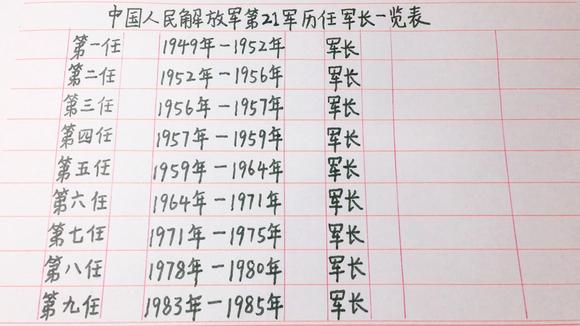 中国人民解放军第21军历任军长一览表
第一任 1949年-1952年 军长
第二任 1952年-1956年 军长
第三任 1956年-1957年 军长
第四任 1957年-1959年 军长
第五任 1959年-1964年 军长
第六任 1964年-1971年 军长
第七任 1971年-1975年 军长
第八任 1978年-1980年 军长
第九任 1983年-1985年 军长